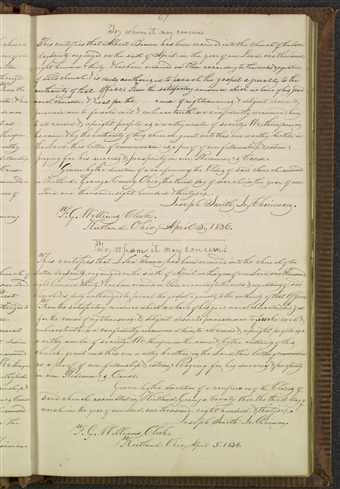 67
To whom it may concern
This certifies that Albert Brown has been received into the church of the Latter
day Saints, organized on the sixth of April, in the year of our Lord, one thousand
eight hundred & thirty, & has been ordained an Elder according to the rules & regulations
of said church, & is duly authorized to preach the gospel agreeably to the
authority of that office. From the satisfactory evidence which we have of his good
moral character, & zeal for the cause of righteousness, & diligent desire to
persuade men to forsake evil & embrace truth, we confidently recommend him
to all candid & upright people as a worthy member of society. We therefore in
the name & by the authority of this church grant unto this our worthy brother in
the Lord this letter of commendation as a proof of our fellowship & esteem:
praying for his success & prosperity in our Redeemer's Cause.
Given by the direction of a conference of the Elders of said church assembled
in Kirtland Geauga County, Ohio, the third day of March in the year of our
Lord one thousand, eight hundred & thirty six.
Joseph Smith Jr. Chairman
F. G. Williams Clerk.
Kirtland, Ohio, April 5, 1836.
To whom it may concern
This certifies that John has been received into the church of the
Latter day Saints, organized on the sixth of April, in the year of our Lord one thousand
eight hundred & thirty, & has been ordained an Elder according to the rules & regulations of said
church, & is duly authorized to preach the gospel agreeably to the authority of that Office.
From the satisfactory evidence which we have of his good moral character, & zeal
for the cause of righteousness, & diligent desire to persuade men to forsake evil &
embrace truth, we confidently recommend him to all candid & upright people as a
worthy member of society. We therefore in the name & by the authority of this
church grant unto this our worthy brother in the Lord this letter of commendation
as a proof of our fellowship & esteem: Praying for his success & prosperity
in our Redeemer's Cause.
Given by the direction of a conference of the Elders of
Said church assembled in Kirtland Geauga County Ohio the third day of
March in the year of our Lord one thousand eight hundred & thirty six.
Joseph Smith Jr. Chairman
F. G. Williams, Clerk.
Kirtland, Ohio, April 5, 1836.